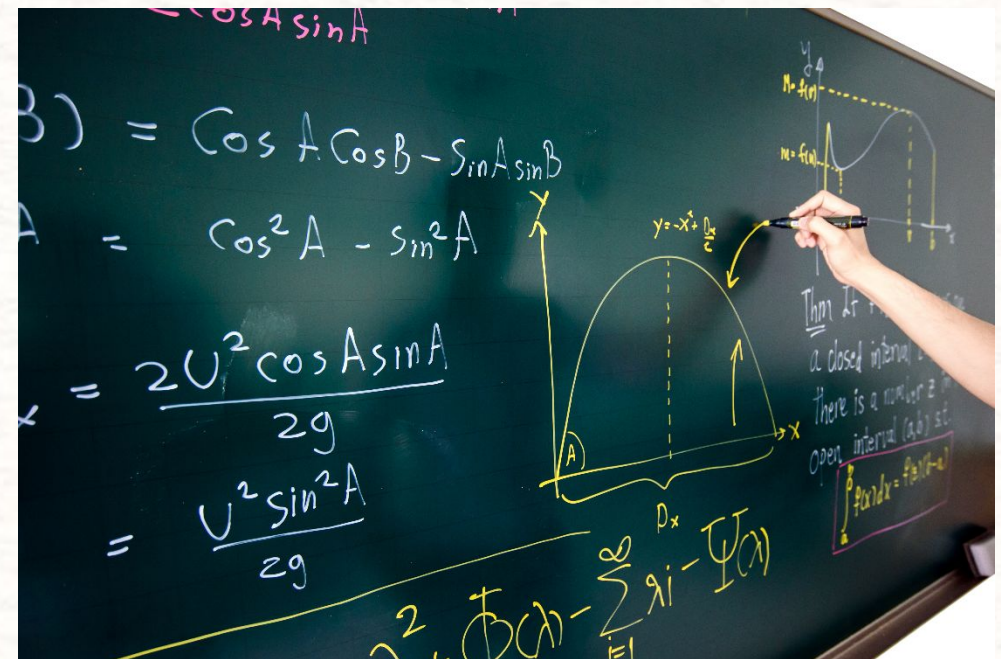 cosA sinA
B) = Cos A CosB - SinA sinB
A = Cos²A - Sin²A
x = 2U² cosA sinA
2g
= U² sin²A
2g
Y
A
X
Dx
² Φ(λ) - ∞ Σ i=1 λi - Ψ(λ)
y
M = f(
m = f(
x
Thm If
a closed interval
there is a number z in
open interval (a,b) s.t.
∫ f(x)dx = f(z)(b-a)
a